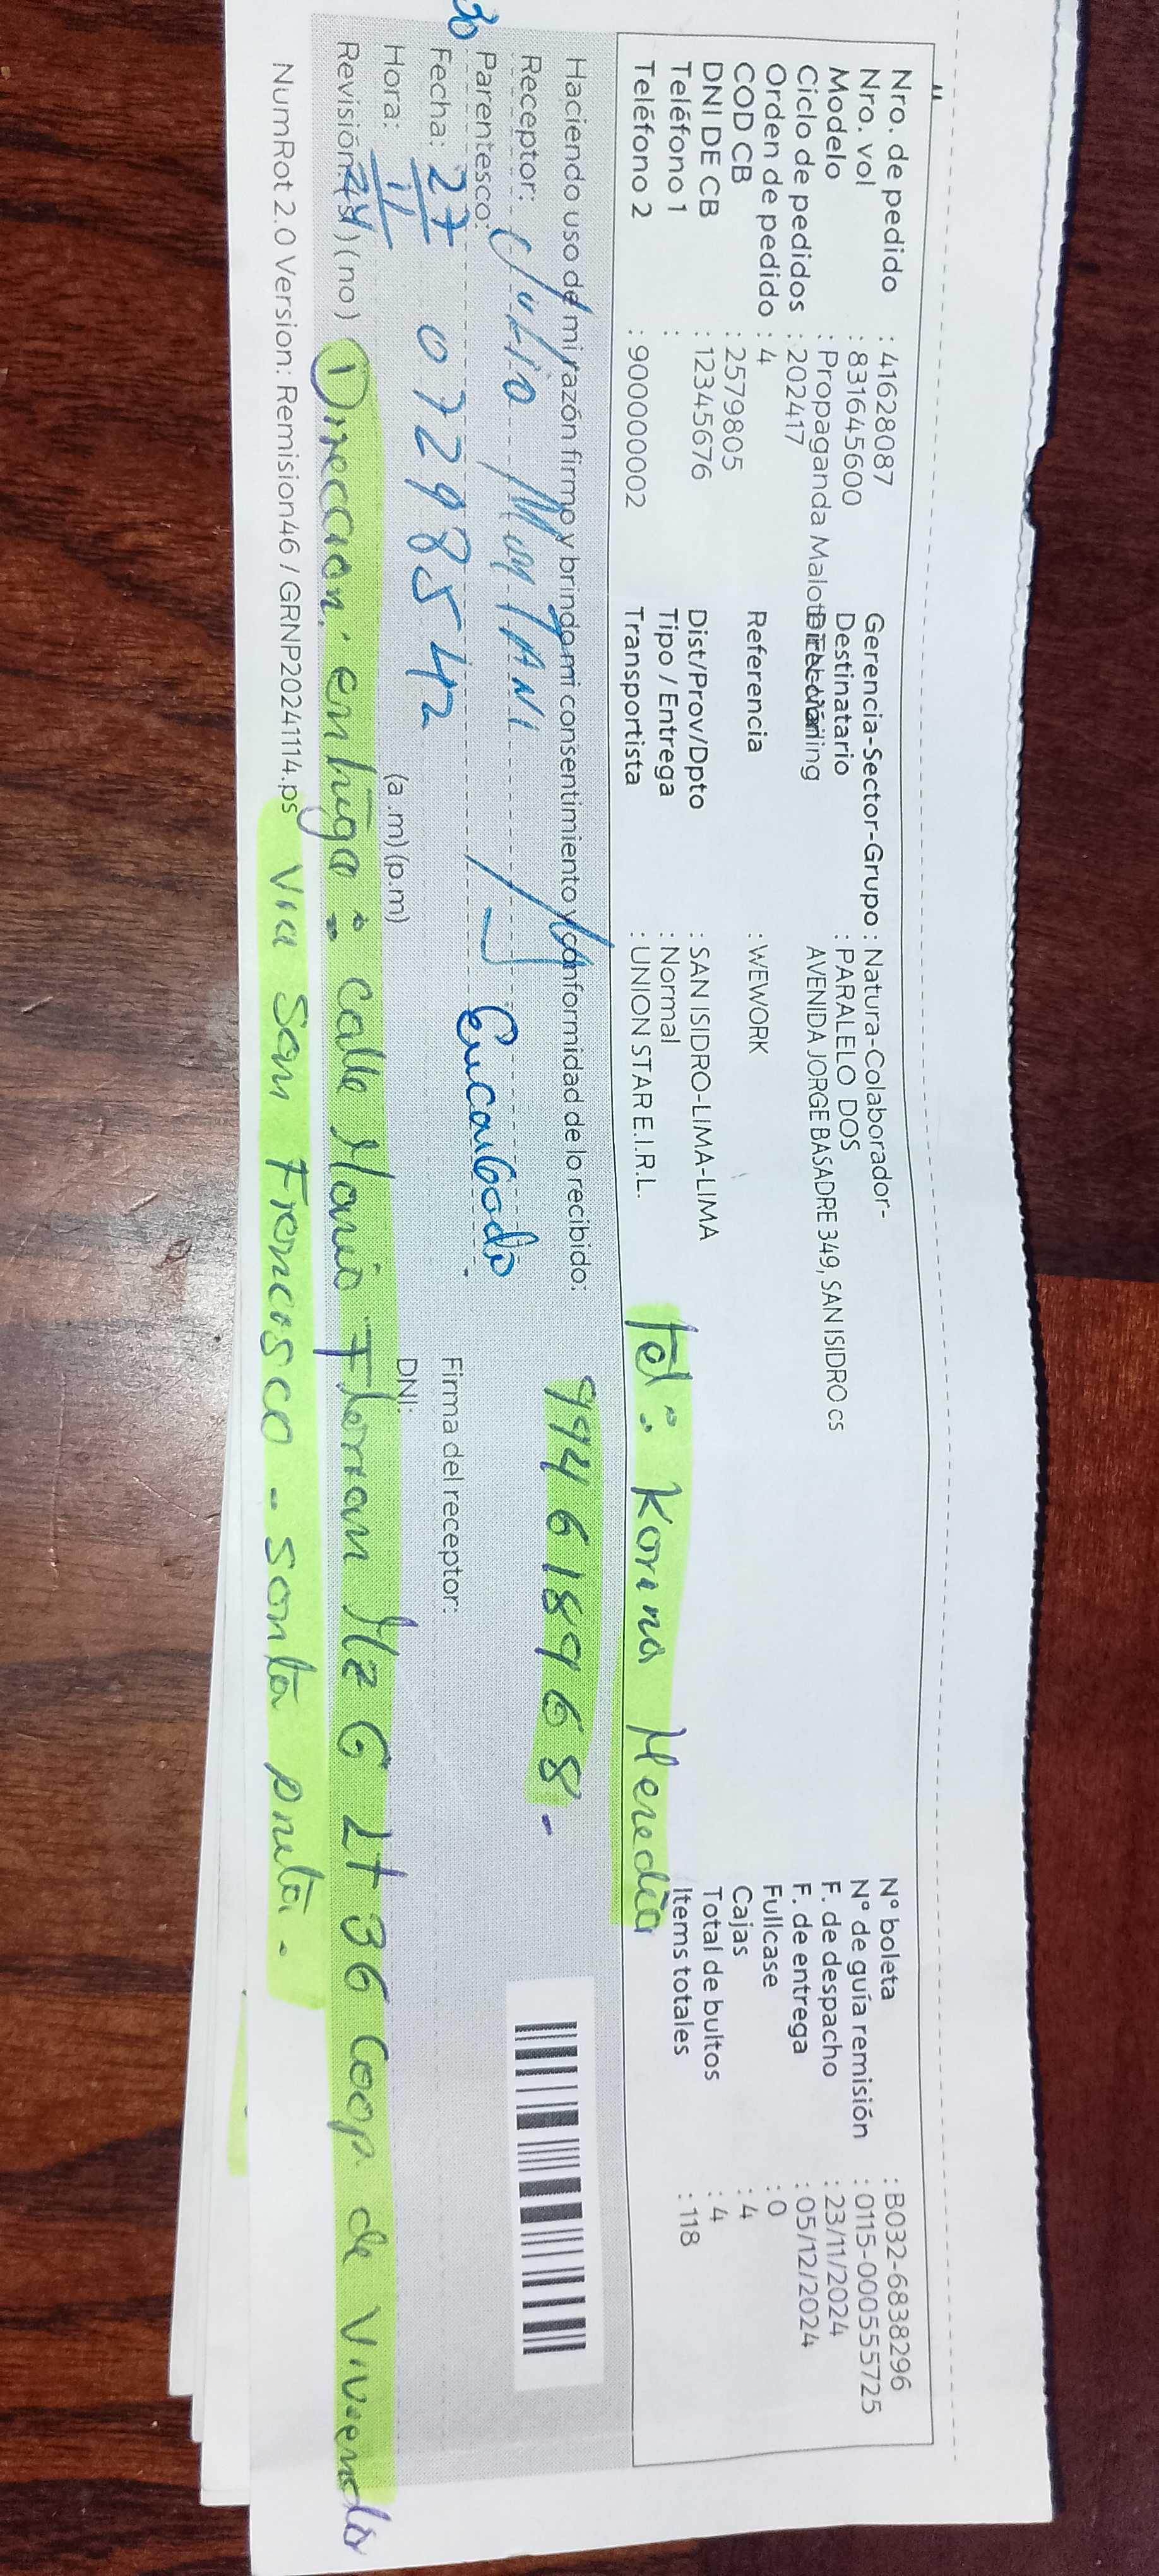 Nro. de pedido : 41628087
Nro. vol : 831645600
Modelo : Propaganda Malote
Ciclo de pedidos : 202417
Orden de pedido : 4
COD CB : 2579805
DNI DE CB : 12345676
Teléfono 1 :
Teléfono 2 : 900000002
Gerencia-Sector-Grupo : Natura-Colaborador-
Destinatario : PARALELO DOS
AVENIDA JORGE BASADRE 349, SAN ISIDRO CS
Referencia : WEWORK
Dist/Prov/Dpto : SAN ISIDRO-LIMA-LIMA
Tipo / Entrega : Normal
Transportista : UNION STAR E.I.R.L.
N° boleta : B032-6838296
N° de guía remisión : 0115-000555725
F. de despacho : 23/11/2024
F. de entrega : 05/12/2024
Fullcase : 0
Cajas : 4
Total de bultos : 4
Items totales : 118
tel: Korina Heredia
994618968-
Haciendo uso de mi razón firmo y brindo mi consentimiento y conformidad de lo recibido:
Receptor: Julio
Parentesco: Encargado
Fecha: 27 07298542
Hora: 11 (a.m)(p.m)
Firma del receptor:
DNI:
Revisión: (no)
① Direccion: entrega: calle Mario Florian Mz G Lt 36 Coop. de Vivienda
NumRot 2.0 Version: Remision46 / GRNP20241114.ps
Via San Francisco - Santa